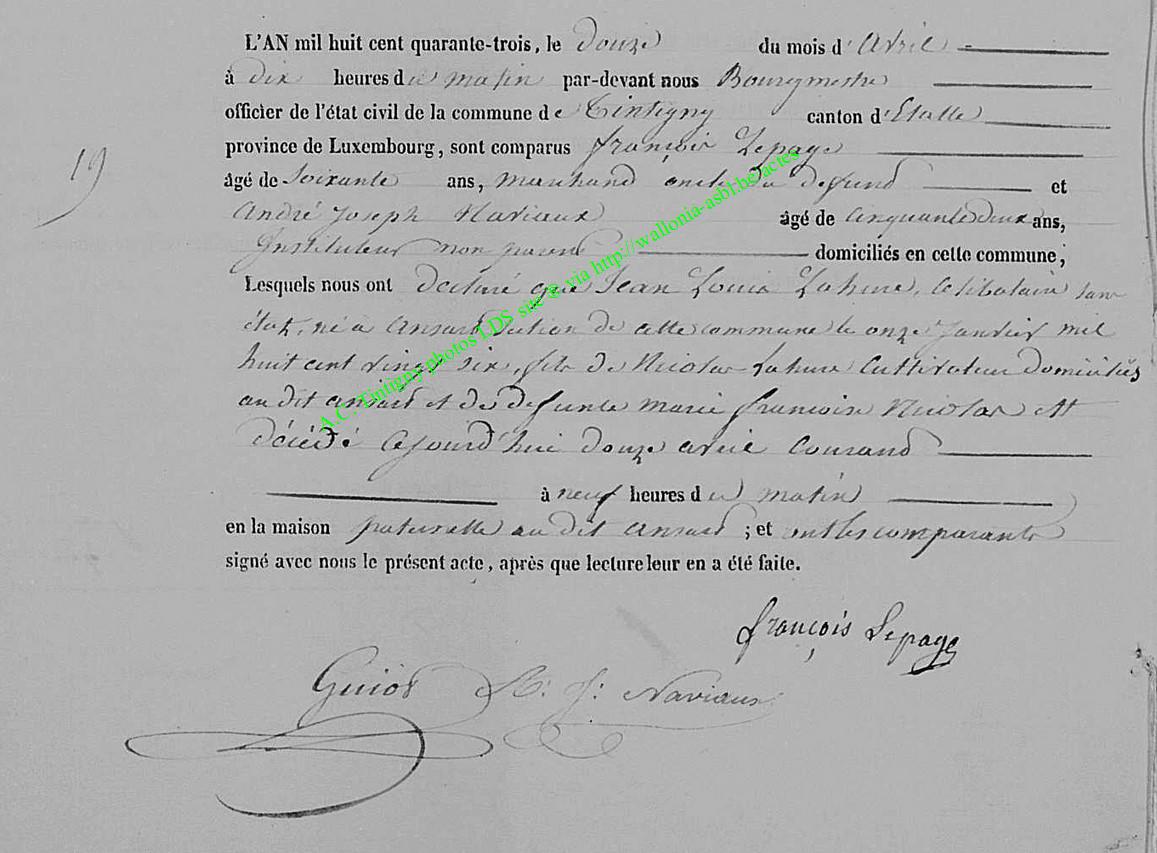 L'AN mil huit cent quarante-trois, le douze du mois d'Avril
à dix heures du matin par-devant nous Bourgmestre
officier de l'état civil de la commune de Tintigny canton d'Etalle
province de Luxembourg, sont comparus françois Lepage
19
âgé de soixante ans, marchand oncle du défunt et
André Joseph Naviaux âgé de cinquante deux ans,
Instituteur non parent domiciliés en cette commune;
Lesquels nous ont déclaré que Jean Louis Lahure, célibataire sans
état, né à ansart section de cette commune le onze Janvier mil
huit cent vingt six, fils de Nicolas Lahure Cultivateur domiciliés
au dit ansart et de défunte marie françoise Nicolas est
décédé cejourd'hui douze avril courand
à neuf heures du matin
en la maison paternelle au dit ansart; et ont les comparants
signé avec nous le présent acte, après que lecture leur en a été faite.
A.C. Tintigny photos LDS site @ via http://wallonia-asbl.be/actes
françois Lepage
Guiot A: J: Naviaux